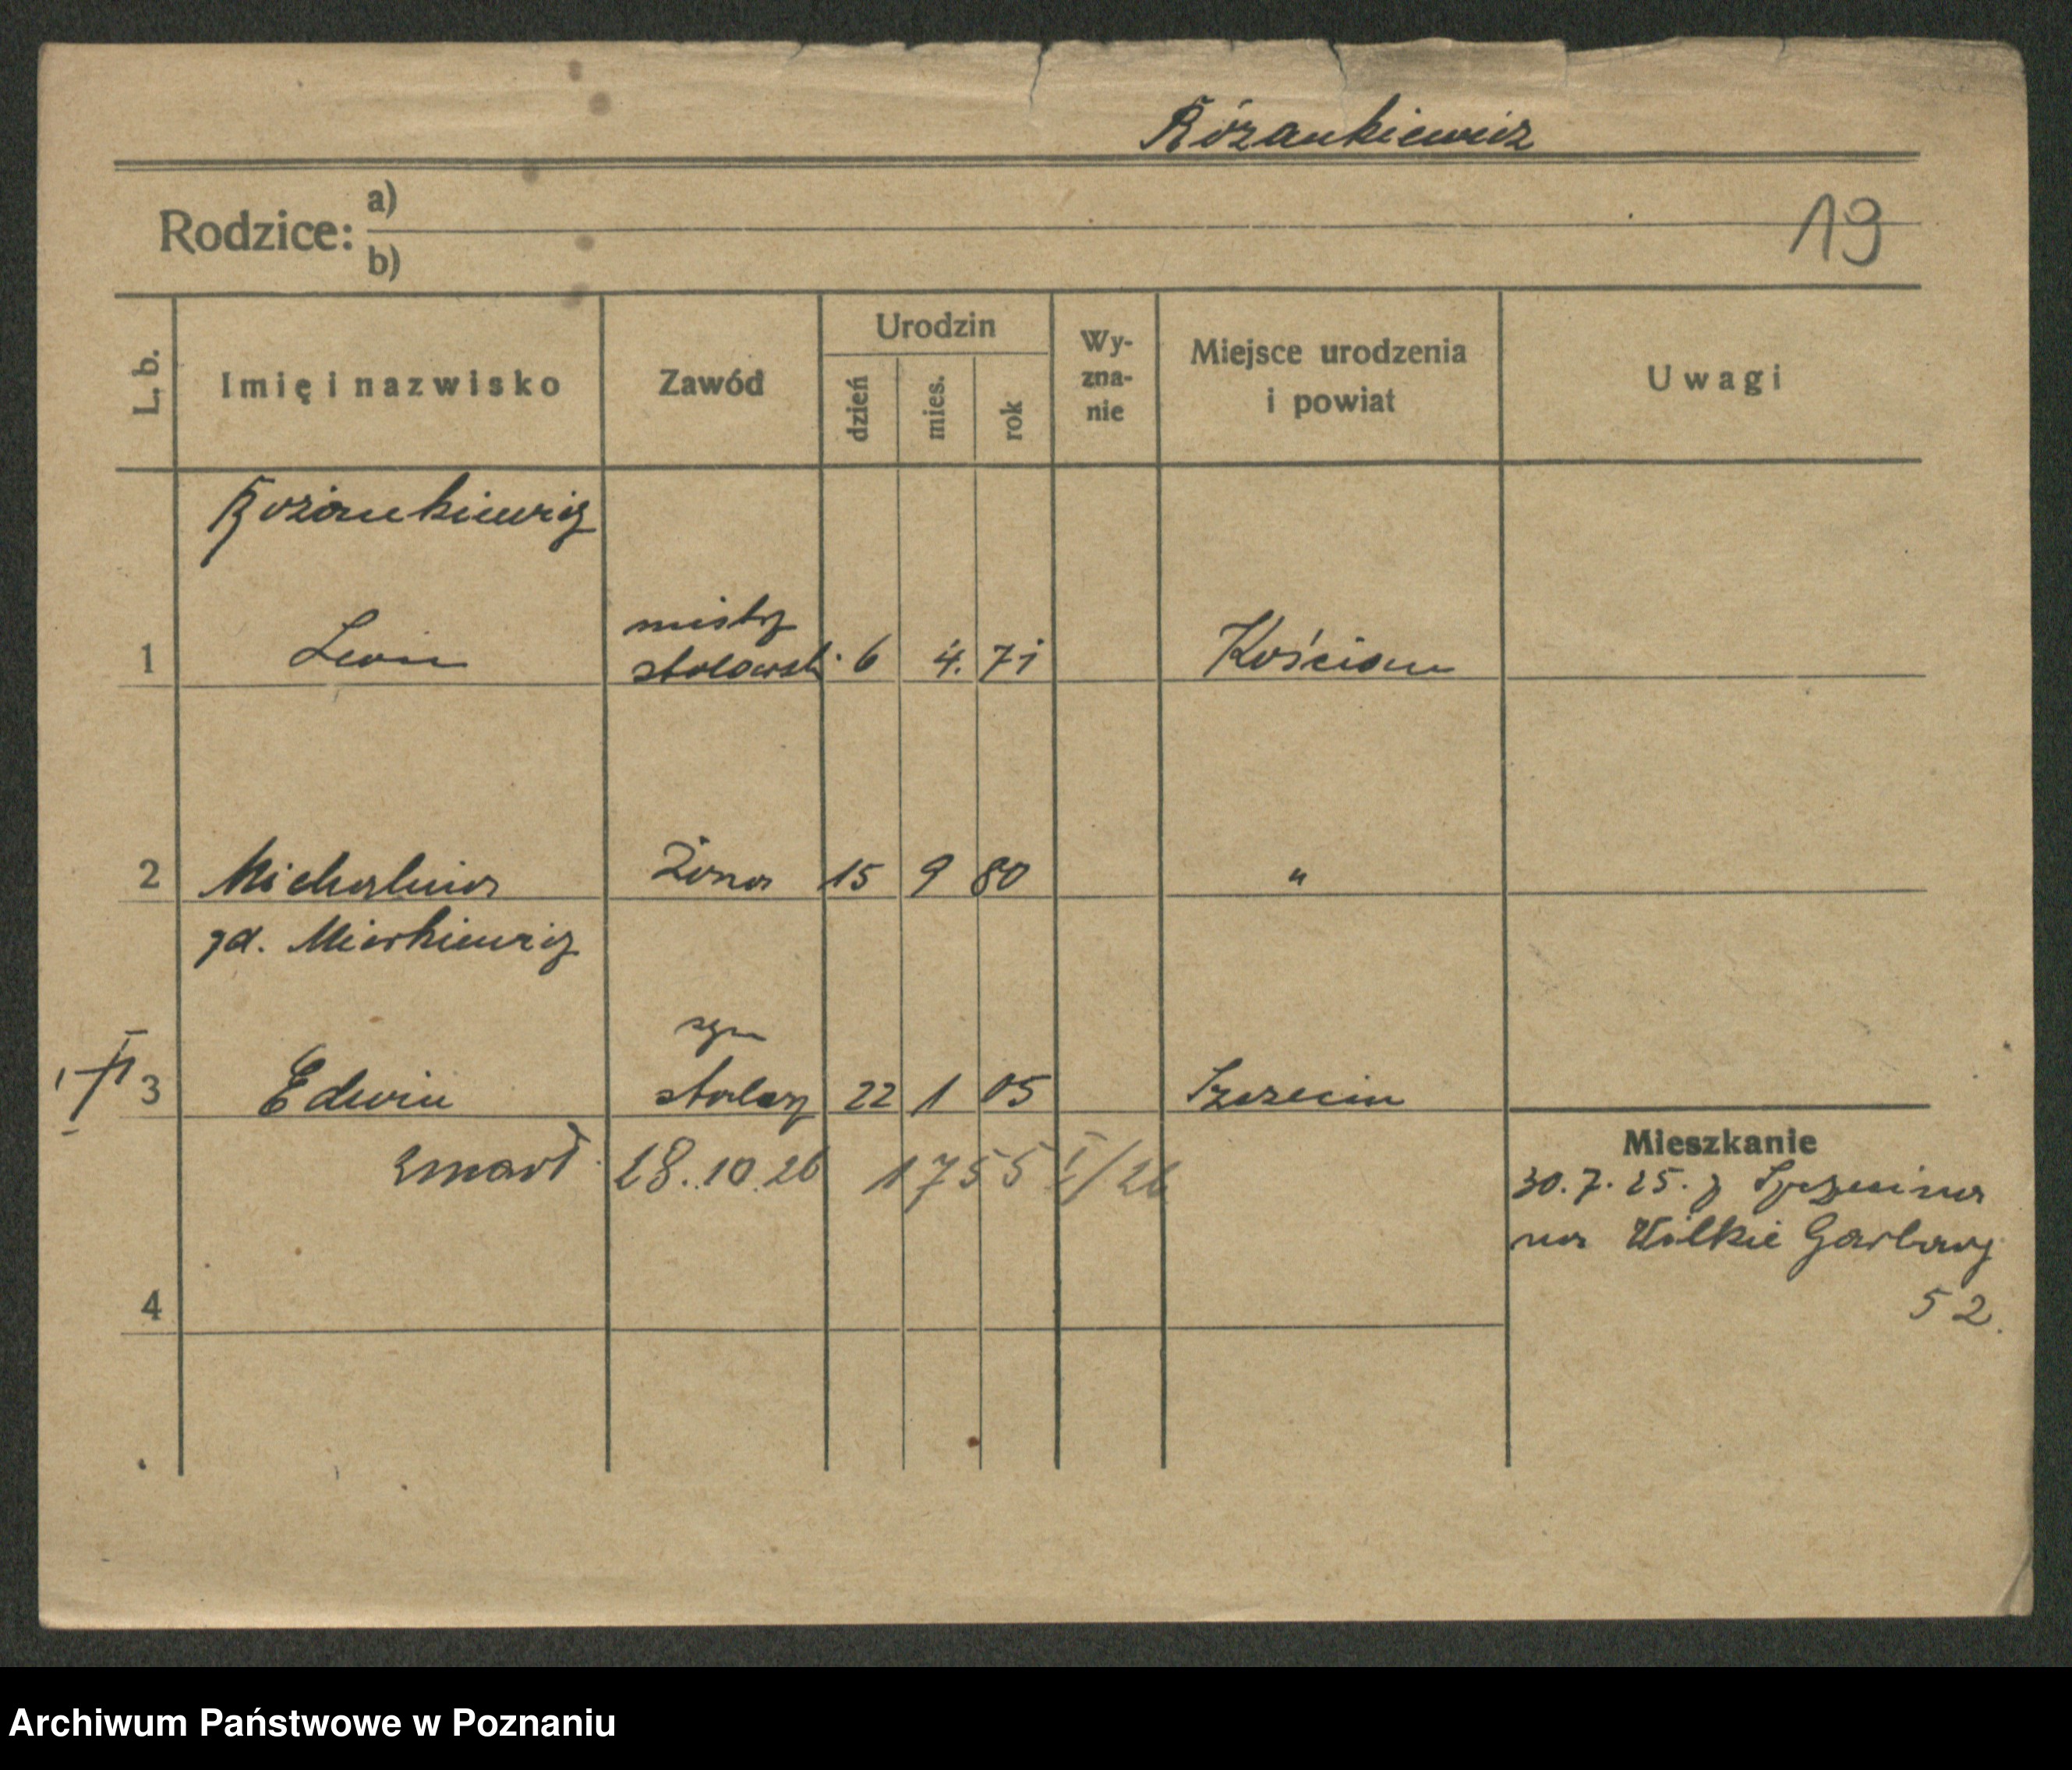 Różankiewicz
Rodzice: a)
b)
19
L. b. Imię i nazwisko Zawód Urodzin dzień mies. rok Wy-zna-nie Miejsce urodzenia i powiat Uwagi
Rożankiewicz
mistrz
1 Leon stolarski 6 4. 71 Kościan
2 Michalina Żona 15 9 80 "
zd. Mierkiewicz
syn
3 Edwin stolarz 22 1 05 Szczecin
zmarł 28.10.26 1755 I/26
Mieszkanie
30.7.25. z Szczecina
na Wielkie Garbary
52.
4
Archiwum Państwowe w Poznaniu